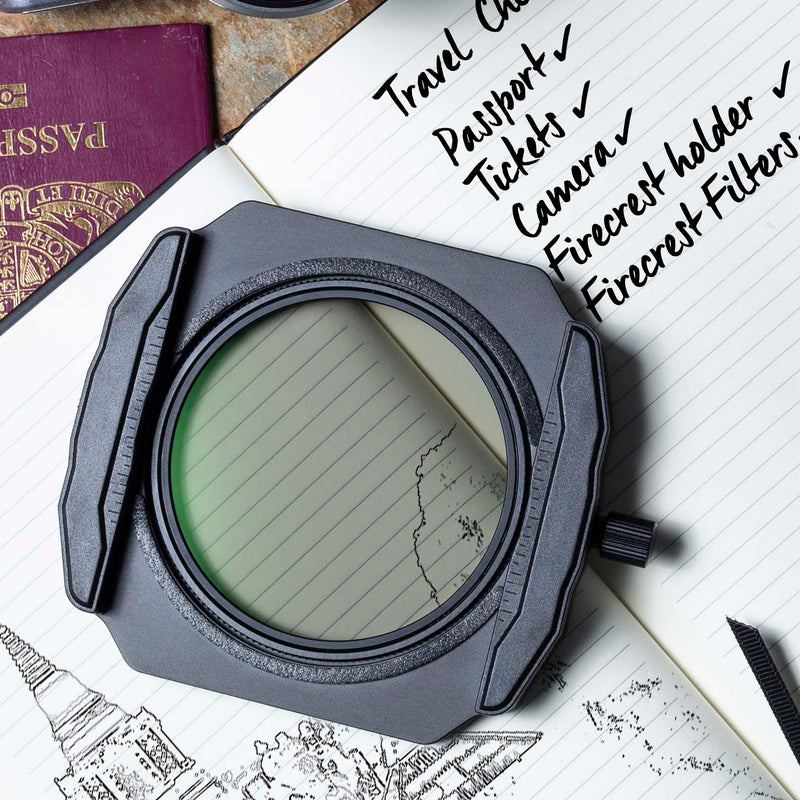 Travel
Passport ✓
Tickets ✓
Camera ✓
Firecrest holder ✓
Firecrest Filters
PASSP
DIEU ET